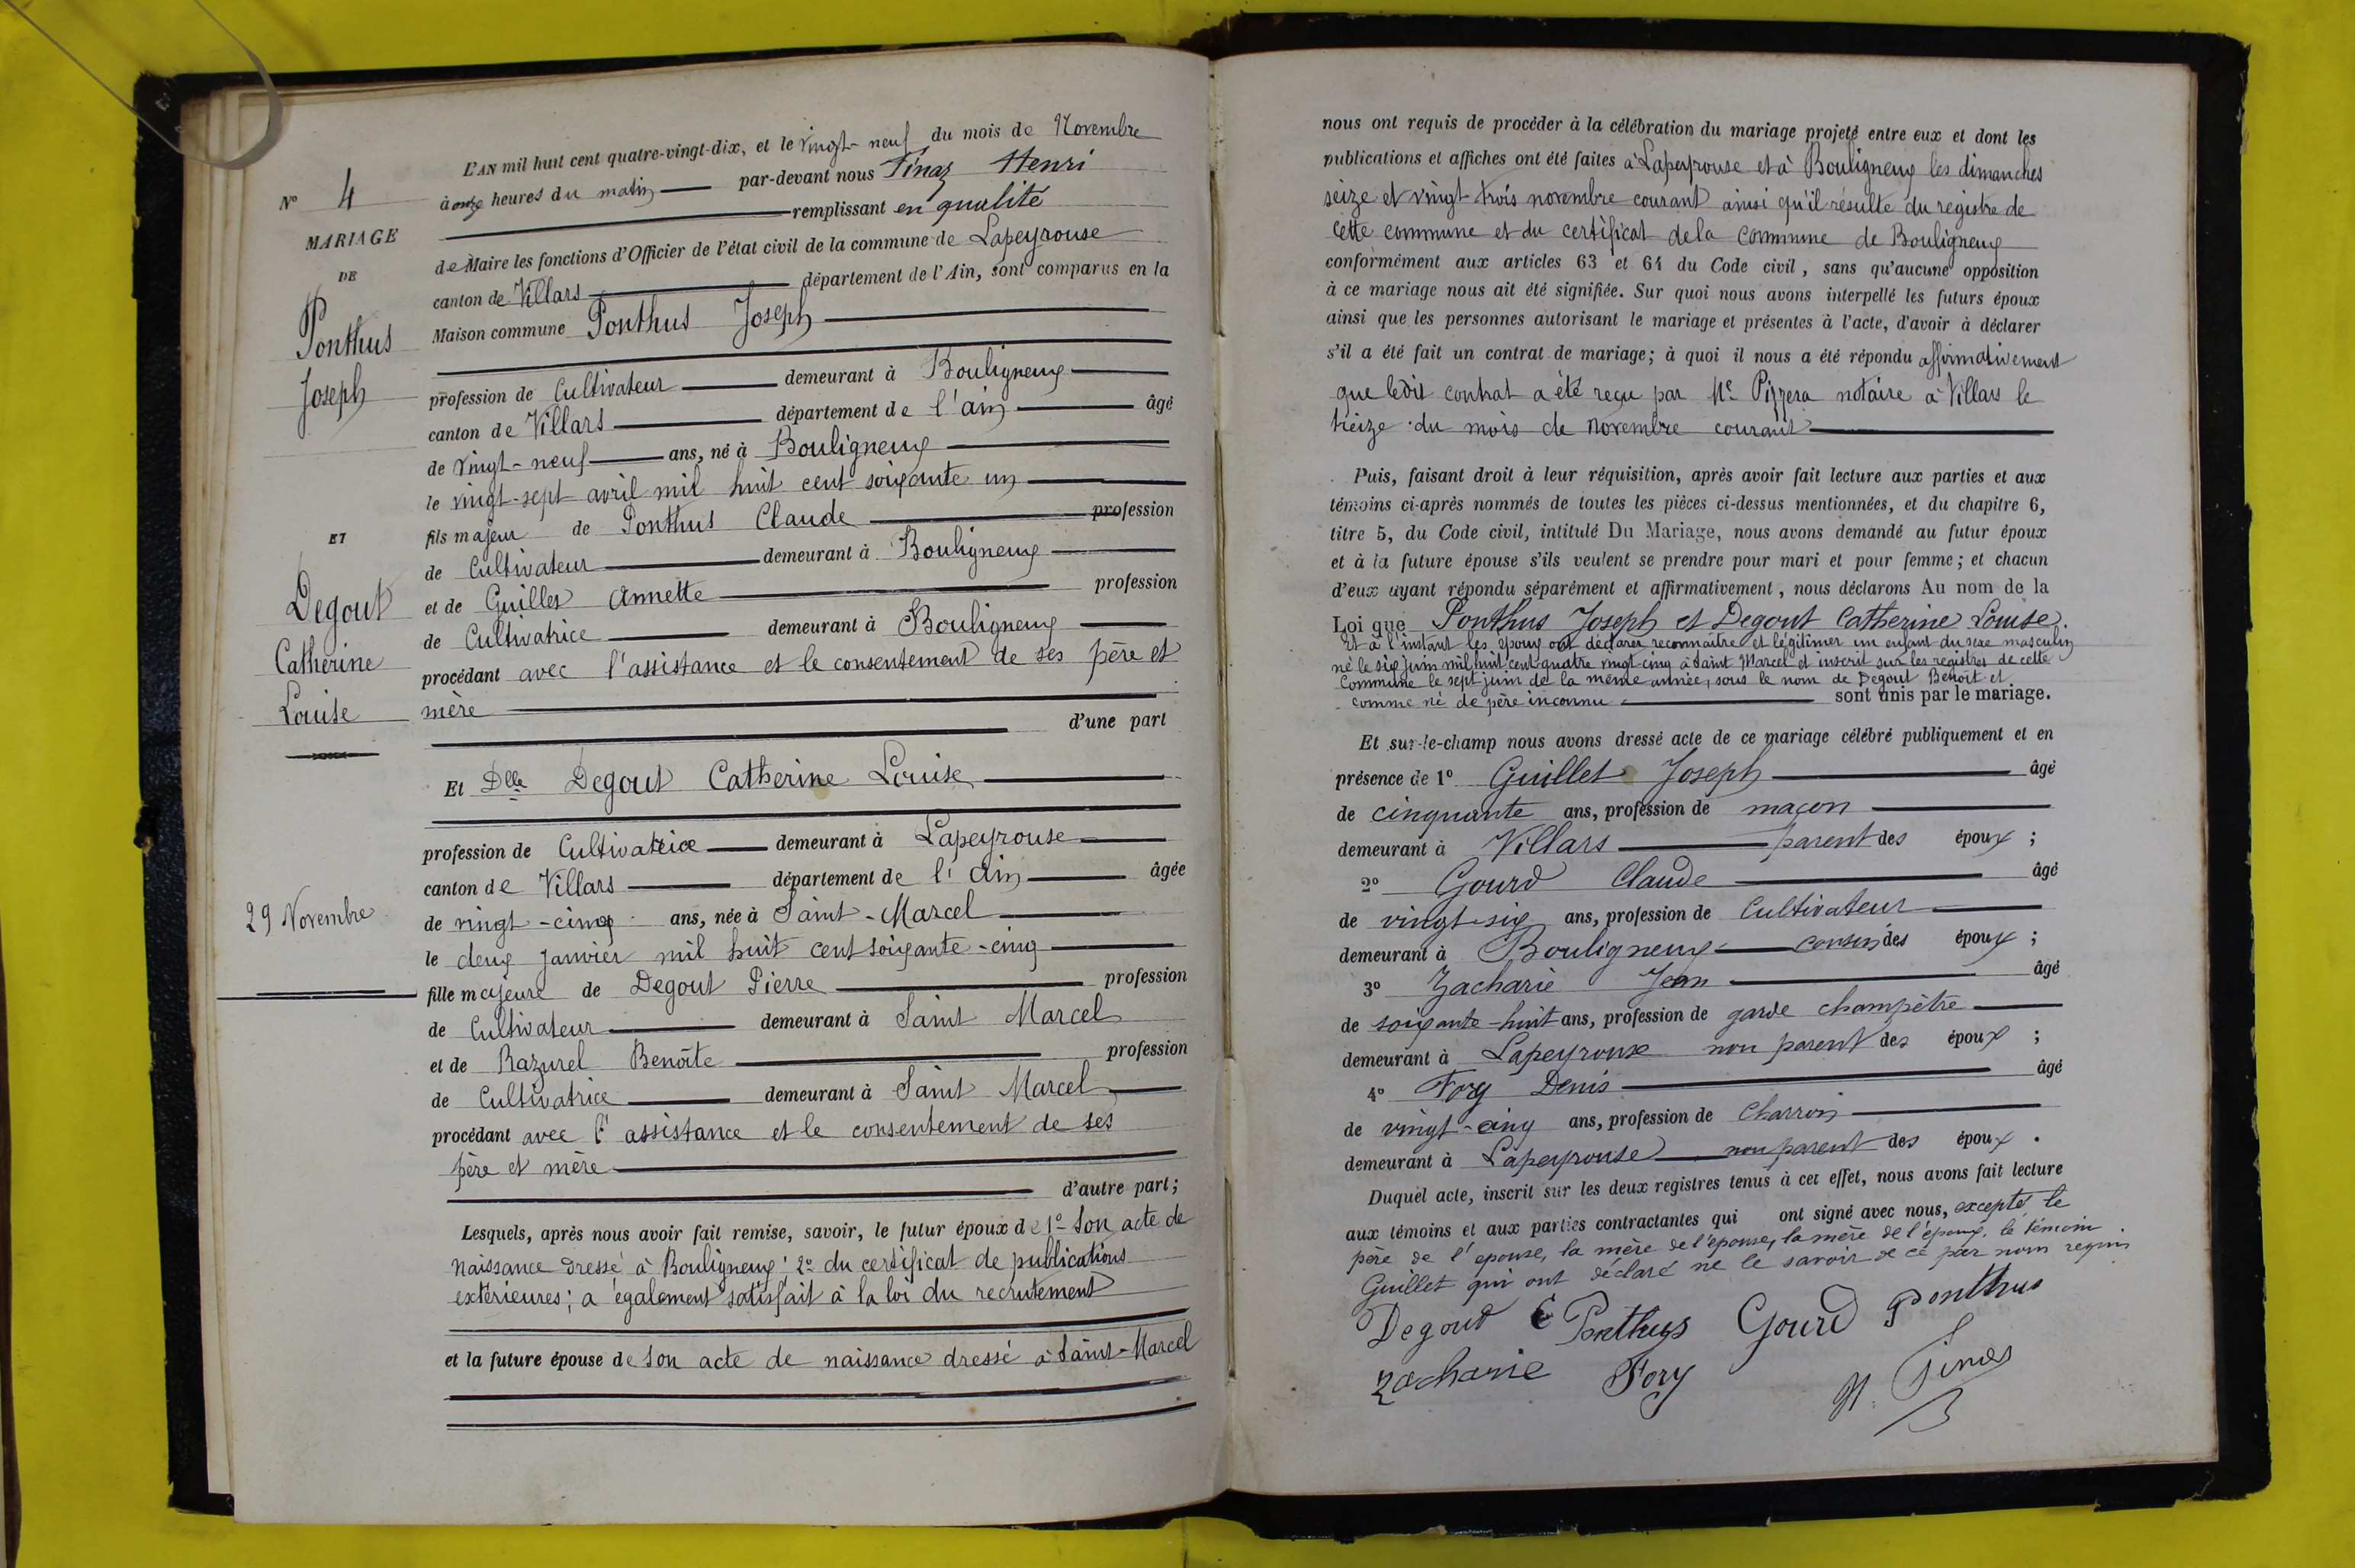 N° 4
MARIAGE
DE
Ponthus
Joseph
ET
Degout
Catherine
Louise
29 Novembre
L'AN mil huit cent quatre-vingt-dix, et le vingt-neuf du mois de Novembre
à onze heures du matin par-devant nous Pinaz Henri
remplissant en qualité
de Maire les fonctions d'Officier de l'état civil de la commune de Lapeyrouse
canton de Villars département de l'Ain, sont comparus en la
Maison commune Ponthus Joseph
profession de Cultivateur demeurant à Bouligneux
canton de Villars département de l'ain âgé
de vingt-neuf ans, né à Bouligneux
le vingt-sept avril mil huit cent soixante un
fils majeur de Ponthus Claude profession
de Cultivateur demeurant à Bouligneux
et de Guillet Annette profession
de Cultivatrice demeurant à Bouligneux
procédant avec l'assistance et le consentement de ses père et
mère
d'une part
Et Dlle Degout Catherine Louise
profession de Cultivatrice demeurant à Lapeyrouse
canton de Villars département de l'Ain âgée
de vingt-cinq ans, née à Saint-Marcel
le deux janvier mil huit cent soixante-cinq
fille majeure de Degout Pierre profession
de Cultivateur demeurant à Saint Marcel
et de Razurel Benoîte profession
de Cultivatrice demeurant à Saint Marcel
procédant avec l'assistance et le consentement de ses
père et mère
d'autre part;
Lesquels, après nous avoir fait remise, savoir, le futur époux de 1° Son acte de
naissance dressé à Bouligneux; 2° du certificat de publications
extérieures; a également satisfait à la loi du recrutement
et la future épouse de Son acte de naissance dressé à Saint-Marcel
nous ont requis de procéder à la célébration du mariage projeté entre eux et dont les
publications et affiches ont été faites à Lapeyrouse et à Bouligneux les dimanches
seize et vingt trois novembre courant ainsi qu'il résulte du registre de
cette commune et du certificat de la commune de Bouligneux
conformément aux articles 63 et 64 du Code civil, sans qu'aucune opposition
à ce mariage nous ait été signifiée. Sur quoi nous avons interpellé les futurs époux
ainsi que les personnes autorisant le mariage et présentes à l'acte, d'avoir à déclarer
s'il a été fait un contrat de mariage; à quoi il nous a été répondu affirmativement
que ledit contrat a été reçu par Me Pizzera notaire à Villars le
treize du mois de novembre courant
Puis, faisant droit à leur réquisition, après avoir fait lecture aux parties et aux
témoins ci-après nommés de toutes les pièces ci-dessus mentionnées, et du chapitre 6,
titre 5, du Code civil, intitulé Du Mariage, nous avons demandé au futur époux
et à la future épouse s'ils veulent se prendre pour mari et pour femme; et chacun
d'eux ayant répondu séparément et affirmativement, nous déclarons Au nom de la
Loi que Ponthus Joseph et Degout Catherine Louise.
Et à l'instant les époux ont déclarer reconnaître et légitimer un enfant du sexe masculin
né le six juin mil huit cent quatre vingt cinq à Saint Marcel et inscrit sur les registres de cette
Commune le sept juin de la même année, sous le nom de Degout Benoît et
comme né de père inconnu sont unis par le mariage.
Et sur-le-champ nous avons dressé acte de ce mariage célébré publiquement et en
présence de 1° Guillet Joseph âgé
de cinquante ans, profession de maçon
demeurant à Villars parent des époux;
2° Gourd Claude âgé
de vingt-six ans, profession de Cultivateur
demeurant à Bouligneux cousin des époux;
3° Zacharie Jean âgé
de soixante-huit ans, profession de garde champêtre
demeurant à Lapeyrouse non parent des époux;
4° Fory Denis âgé
de vingt-cinq ans, profession de Charron
demeurant à Lapeyrouse non parent des époux.
Duquel acte, inscrit sur les deux registres tenus à cet effet, nous avons fait lecture
aux témoins et aux parties contractantes qui ont signé avec nous, excepté le
père de l'epouse, la mère de l'épouse, la mère de l'époux, le témoin
Guillet qui ont déclaré ne le savoir de ce par nous requis
Degout C Ponthus Gourd Ponthus
Zacharie Fory H. Pinaz